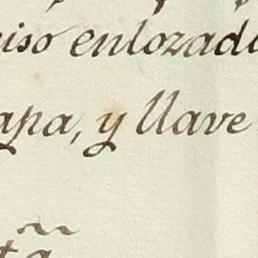 iso enlozado
apa, y llave